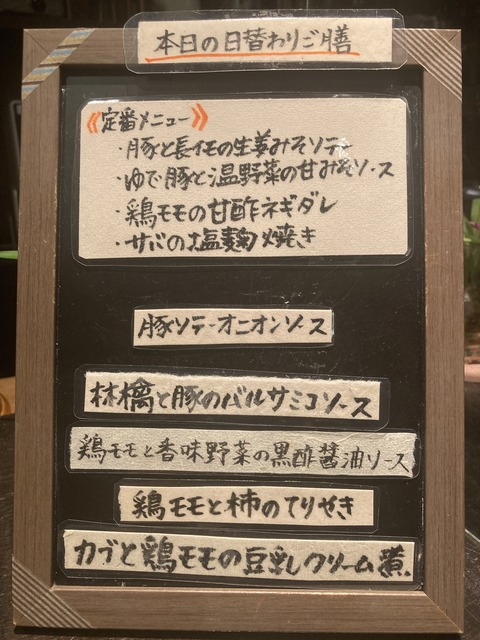 本日の日替わりご膳
《定番メニュー》
・豚と長イモの生姜みそソテー
・ゆで豚と温野菜の甘みそソース
・鶏モモの甘酢ネギダレ
・サバの塩麹焼き
豚ソテーオニオンソース
林檎と豚のバルサミコソース
鶏モモと香味野菜の黒酢醤油ソース
鶏モモと柿のてりやき
カブと鶏モモの豆乳クリーム煮